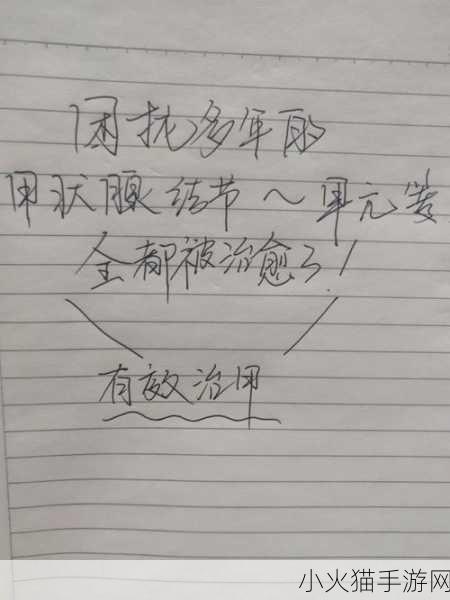 困扰多年的
甲状腺结节~单元类
全都被治愈了!
有效治甲
小火猫手游网